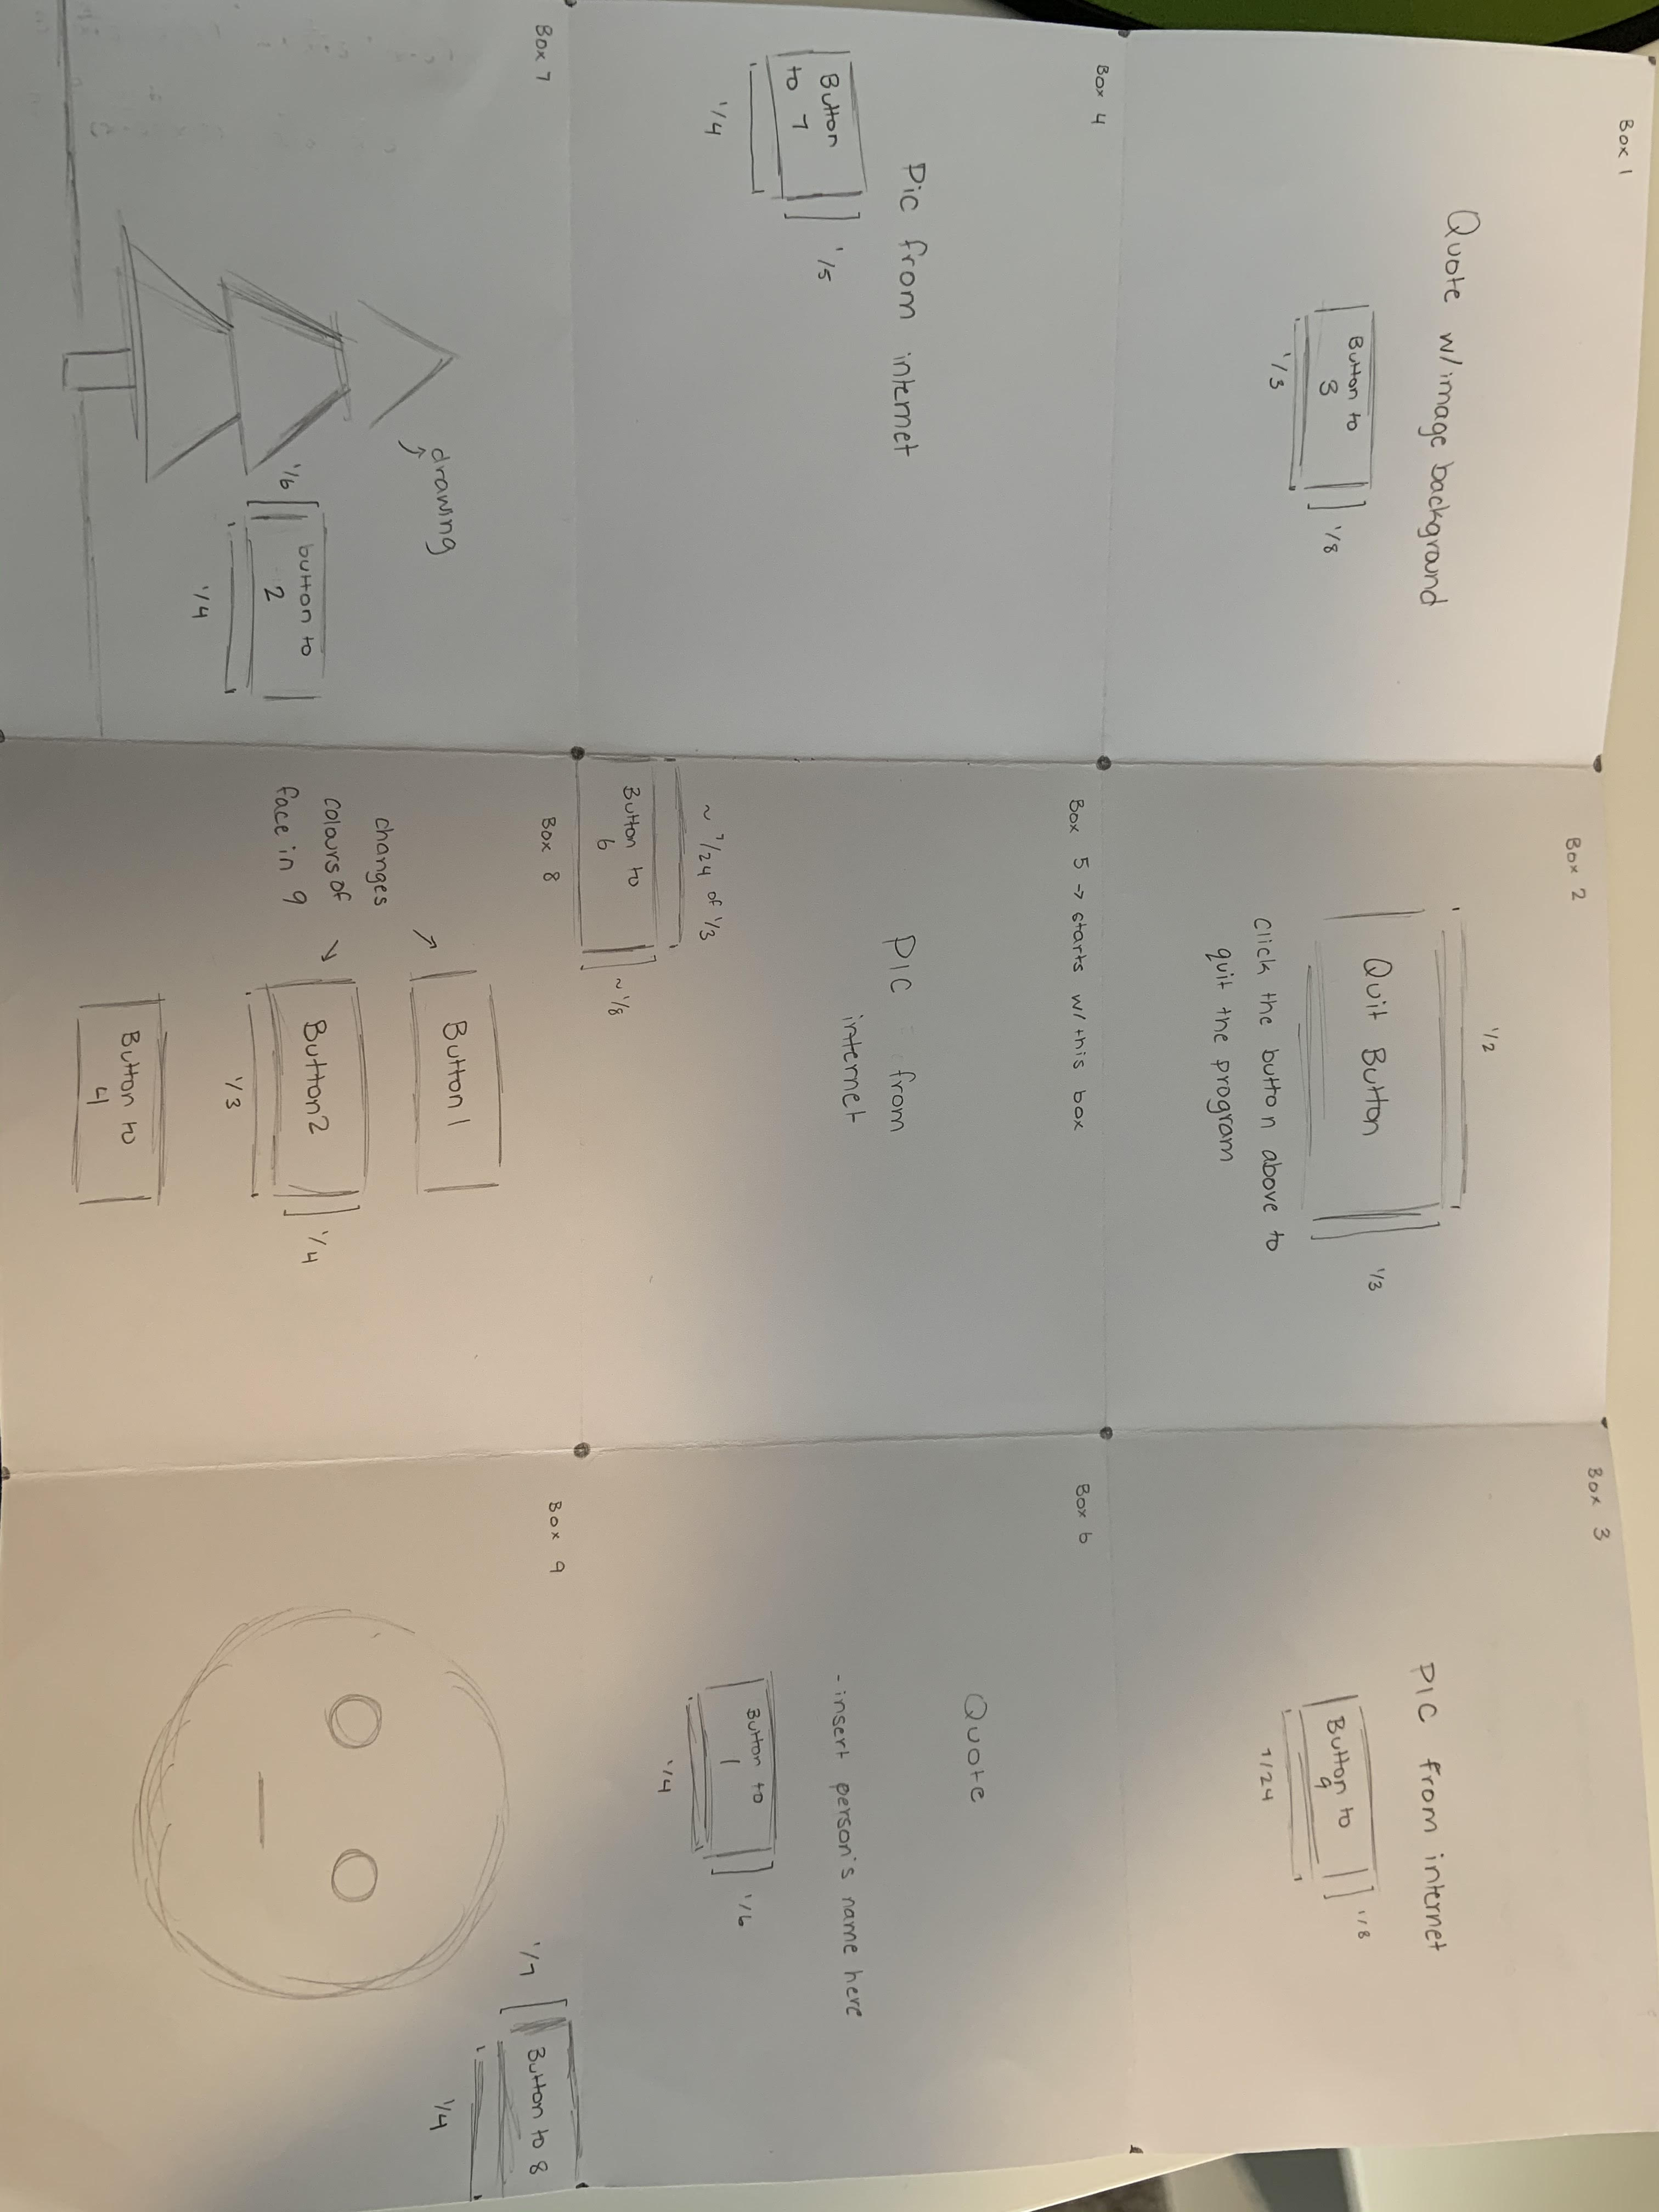 Box 1
Quote w/image background
Button to
3
1/8
1/3
Box 2
1/2
Quit Button
1/3
Click the button above to
quit the program
Box 3
PIC from internet
Button to
9
1/8
7/24
Box 4
Pic from internet
Button
to 7
1/5
1/4
Box 5 → starts w/this box
PIC from
internet
~ 7/24 of 1/3
Button to
6
~ 1/8
Box 6
Quote
-insert person's name here
Button to
1
1/6
1/4
Box 7
drawing
1/6
button to
2
1/4
Box 8
Button 1
changes
colours of
face in 9
Button 2
1/4
1/3
Button to
4
Box 9
1/7
Button to 8
1/4